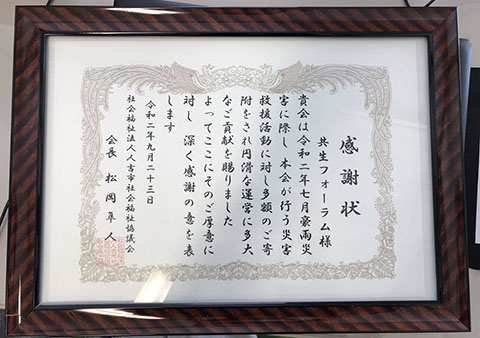 感謝状
共生フォーラム様
貴会は令和二年七月豪雨災
害に際し本会が行う災害
救援活動に対し多額のご寄
附をされ円滑な運営に多大
なご貢献を賜りました
よってここにそのご厚意に
対し深く感謝の意を表
します
令和二年九月二十三日
社会福祉法人人吉市社会福祉協議会
会長 松岡隼人